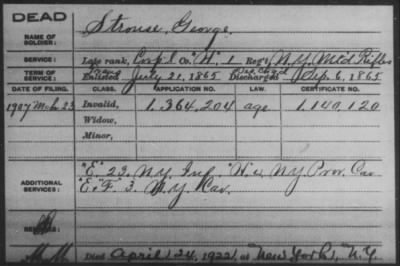 DEAD
NAME OF SOLDIER: Strouse, George.
SERVICE: Late rank, Corpl Co. "H", 1 Reg't N.Y. Mt'd Rifles
TERM OF SERVICE: Enlisted July 21, 1865 Discharged Sep. 6, 1865
DATE OF FILING. CLASS. APPLICATION NO. LAW. CERTIFICATE NO.
1907 Mch 23 Invalid, 1,364,204 age 1,140,120
Widow,
Minor,
"E" 23, N.Y. Inf. "H" 4 N.Y. Prov. Cav
ADDITIONAL SERVICES: "E" "F" 3, N.Y. Cav.
REMARKS:
Died April 24, 1922, at New York, N.Y.